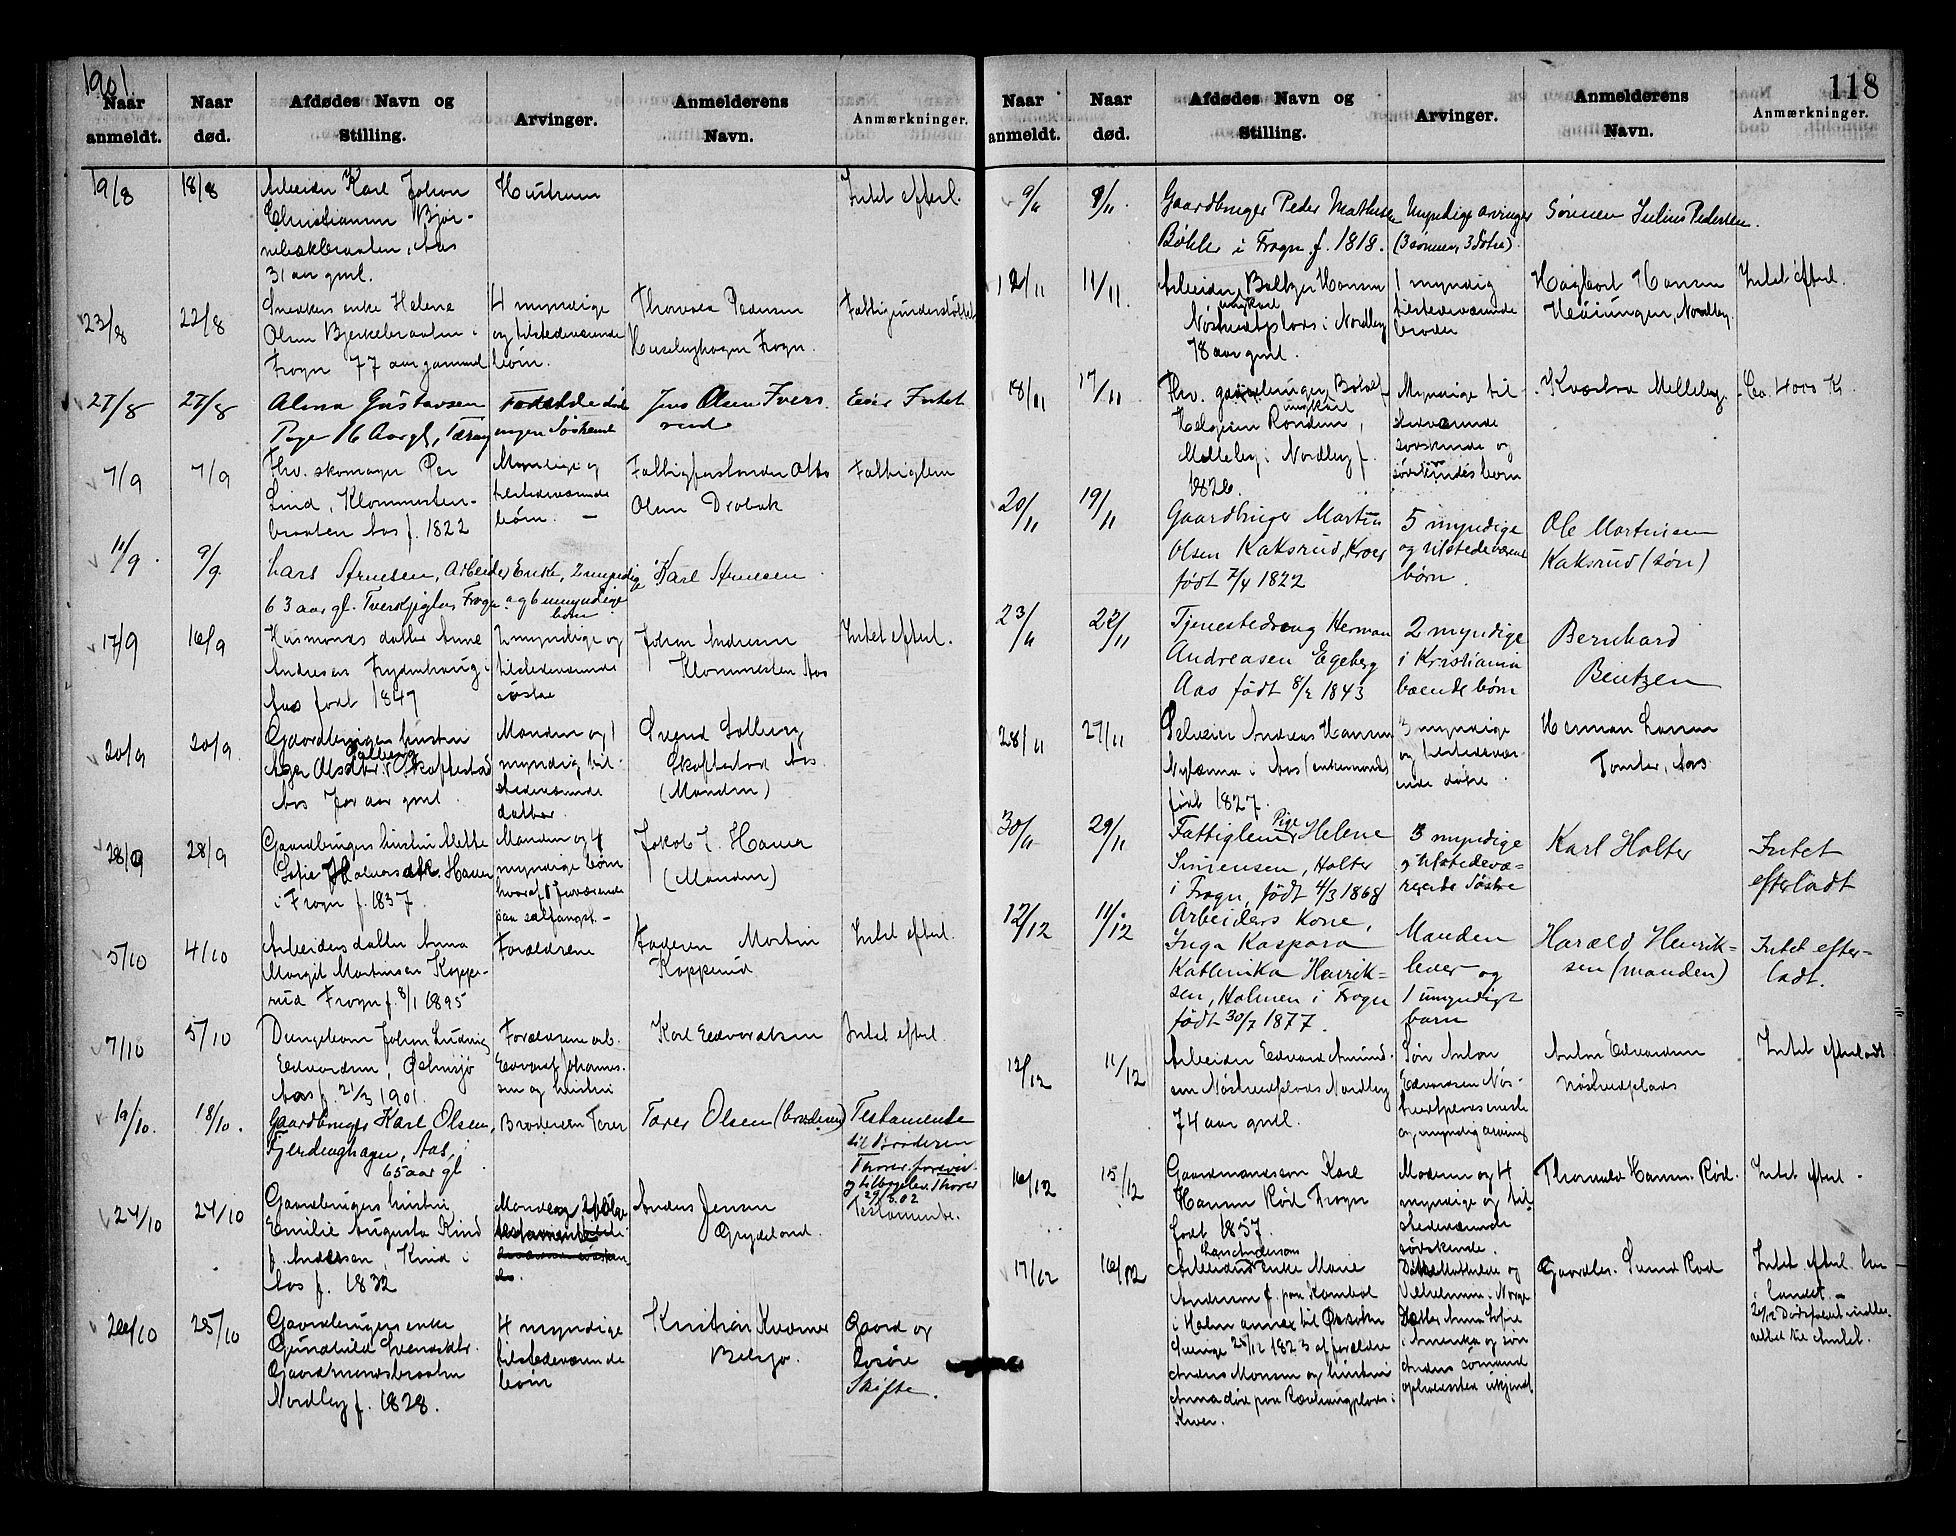 1901.
118
Naar anmeldt.
Naar død.
Afdødes Navn og Stilling.
Arvinger.
Anmelderens Navn.
Anmærkninger.
19/8
18/8
Arbeider Karl Johan
Christiansen Bjør-
nebækbraaten, Aas
31 aar gml.
Hustruen
Intet efterl.
23/8
22/8
Snedkers enke Helene
Olsen Bjerkebraaten i
Frogn 77 aar gammel
4 myndige
og tilstedeværende
børn.
Thorvald Pedersen
Husebyhagen Frogn.
Fattigunderstøttet
27/8
27/8
Alma Gustavsen
Pige 16 Aar gl,
Forældre død
ingen Søskende
Jens Olsen Ivers-
rud
Eier Intet
7/9
7/9
Fhv. skomager Per
Lind, Klommesten-
braaten Aas f. 1822
Myndige og
tilstedeværende
børn. —
Fattigforstander Otto
Olsen Drøbak
Fattiglem
11/9.
9/9.
Lars Arnesen, Arbeider
63 aar gl. Frogn.
Enke, 2 myndige
og 6 umyndige
børn
Karl Arnesen
17/9
16/9
Husmands datter Anne
Andresen Frydenhaug i
Aas født 1847
2 myndige og
tilstedeværende
søstre
Johan Andresen
Klommesten Aas
Intet efterl.
20/9
20/9.
Gaardbrugers hustru
Solberg
Skoftestad
Aas 70 aar gml.
Manden og 1
myndig til-
stedeværende
datter
Svend Solberg
Skoftestad Aas
(Manden)
28/9
28/9
Gaardbrugers hustru Mette
Sofie Halvorsdtr. Haver
i Frogn f. 1837.
Manden og 4
myndige børn
hvoraf 1 fraværende
paa sælfangst. —
Jakob J. Haver
(Manden)
5/10
4/10
Arbeiders datter Anna
Margit Martinsen Koppe-
rud Frogn f. 8/1 1895
Forældrene
Faderen Martin
Kopperud
Intet efterl.
7/10
5/10
Drengebarn Johan Ludvig
Edvardsen,
Aas f. 21/3 1901.
Forældrene arb.
Edvard Johannes-
sen og hustru
Karl Edvardsen
Intet efterl.
19/10.
18/10.
Gaardbruger Karl Olsen,
Fjerdinghagen, Aas,
65 aar gl
Broderen Torer
Torer Olsen (broderen)
Testamente
til Broderen
29/3.02
Testamente.
24/10
24/10
Gaardbrugers hustru
Emilie Augusta Kind
f. Andersen, Kind i
Aas f. 1832
Manden
Anders Jensen
Grydeland.
26/10
25/10
Gaardbrugers enke
Gunhild Svendsdtr.
Gaardmandsbraaten
Nordby f. 1828.
4 myndige
tilstedeværende
børn
Kristian Kværner
Belsjø.
Gaard og
Løsøre
Skifte.
Naar anmeldt.
Naar død.
Afdødes Navn og Stilling.
Arvinger.
Anmelderens Navn.
Anmærkninger.
9/11
8/11.
Gaardbruger Peder Mathisen
Bøhler i Frogn f. 1818.
Myndige arvinger
(3 sønner, 3 døtre).
Sørenen Julius Pedersen.
12/11
11/11.
Arbeider Baltzer Hansen
ungkarl
Nøstvedtplads i Nordby
78 aar gml.
1 myndig
tilstedeværende
broder
Hagbart Hansen
Nordby.
Intet efterl.
18/11
17/11
Fhv. gaardbruger
ungkarl
Melleby i Nordby f.
1826.
Myndige til-
stedværende
søskende og
søskendes børn
Kværstra Melleby.
Ca. 4000 K.
20/11
19/11
Gaardbruger Martin
Olsen Kaksrud, Kroer
født 7/4 1822
5 myndige
og tilstedeværende
børn.
Ole Martinsen
Kaksrud (søn)
23/11
22/11
Tjenestedreng Herman
Andreasen Egeberg
Aas født 8/2 1843
2 myndige
i Kristiania
boende børn
Bernhard
Bentzen
28/11
27/11
Selveier Andreas Hansen
i Aas (enkemand)
født 1827.
3 myndige
og tilstedevær-
ende døtre
Herman Larsen
Tomter, Aas
30/11
29/11
Pige
Fattiglem Helene
Holter
i Frogn, født 4/3 1868
3 myndige
og tilstedevæ-
rende Søstre
Karl Holter
Intet
efterladt
12/12
11/12
Arbeiders Kone,
Inga Kaspara
Kathinka Henrik-
sen, Holmen i Frogn
født 30/7 1877.
Manden
lever og
1 umyndigt
barn
Harald Henrik-
sen (manden)
Intet efter-
ladt.
12/12
11/12
Arbeider Edvard Amund-
sen Nøstvedtplads Nordby
74 aar gml.
Søn Anton
Edvardsen Nøs-
tvedtplads eneste
og myndig arving
Anton Edvardsen
Nøstvedtplads
Intet efterladt
16/12
15/12
Gaardmandssøn Karl
Hansen Rød Frogn
født 1857.
Moderen og 4
myndige og til-
stedeværende
søskende.
Thorvald Hansen Rød.
Intet efterl.
17/12
16/12
Lars Andersens
Arbeider enke Marie
Anderson f. paa
i Holm annex til
Sverige 25/12 1823 af forældre
Anders Monsen og hustru
Anna død paa
Kroer.
Døtre Mathilde og
Vilhelmine i Norge
Datter Anna Sofie
i Amerika og søn
Anders sømand
opholdssted ukjendt
Gaardbr. Sund Rød
Intet efterl. her
i Landet. —